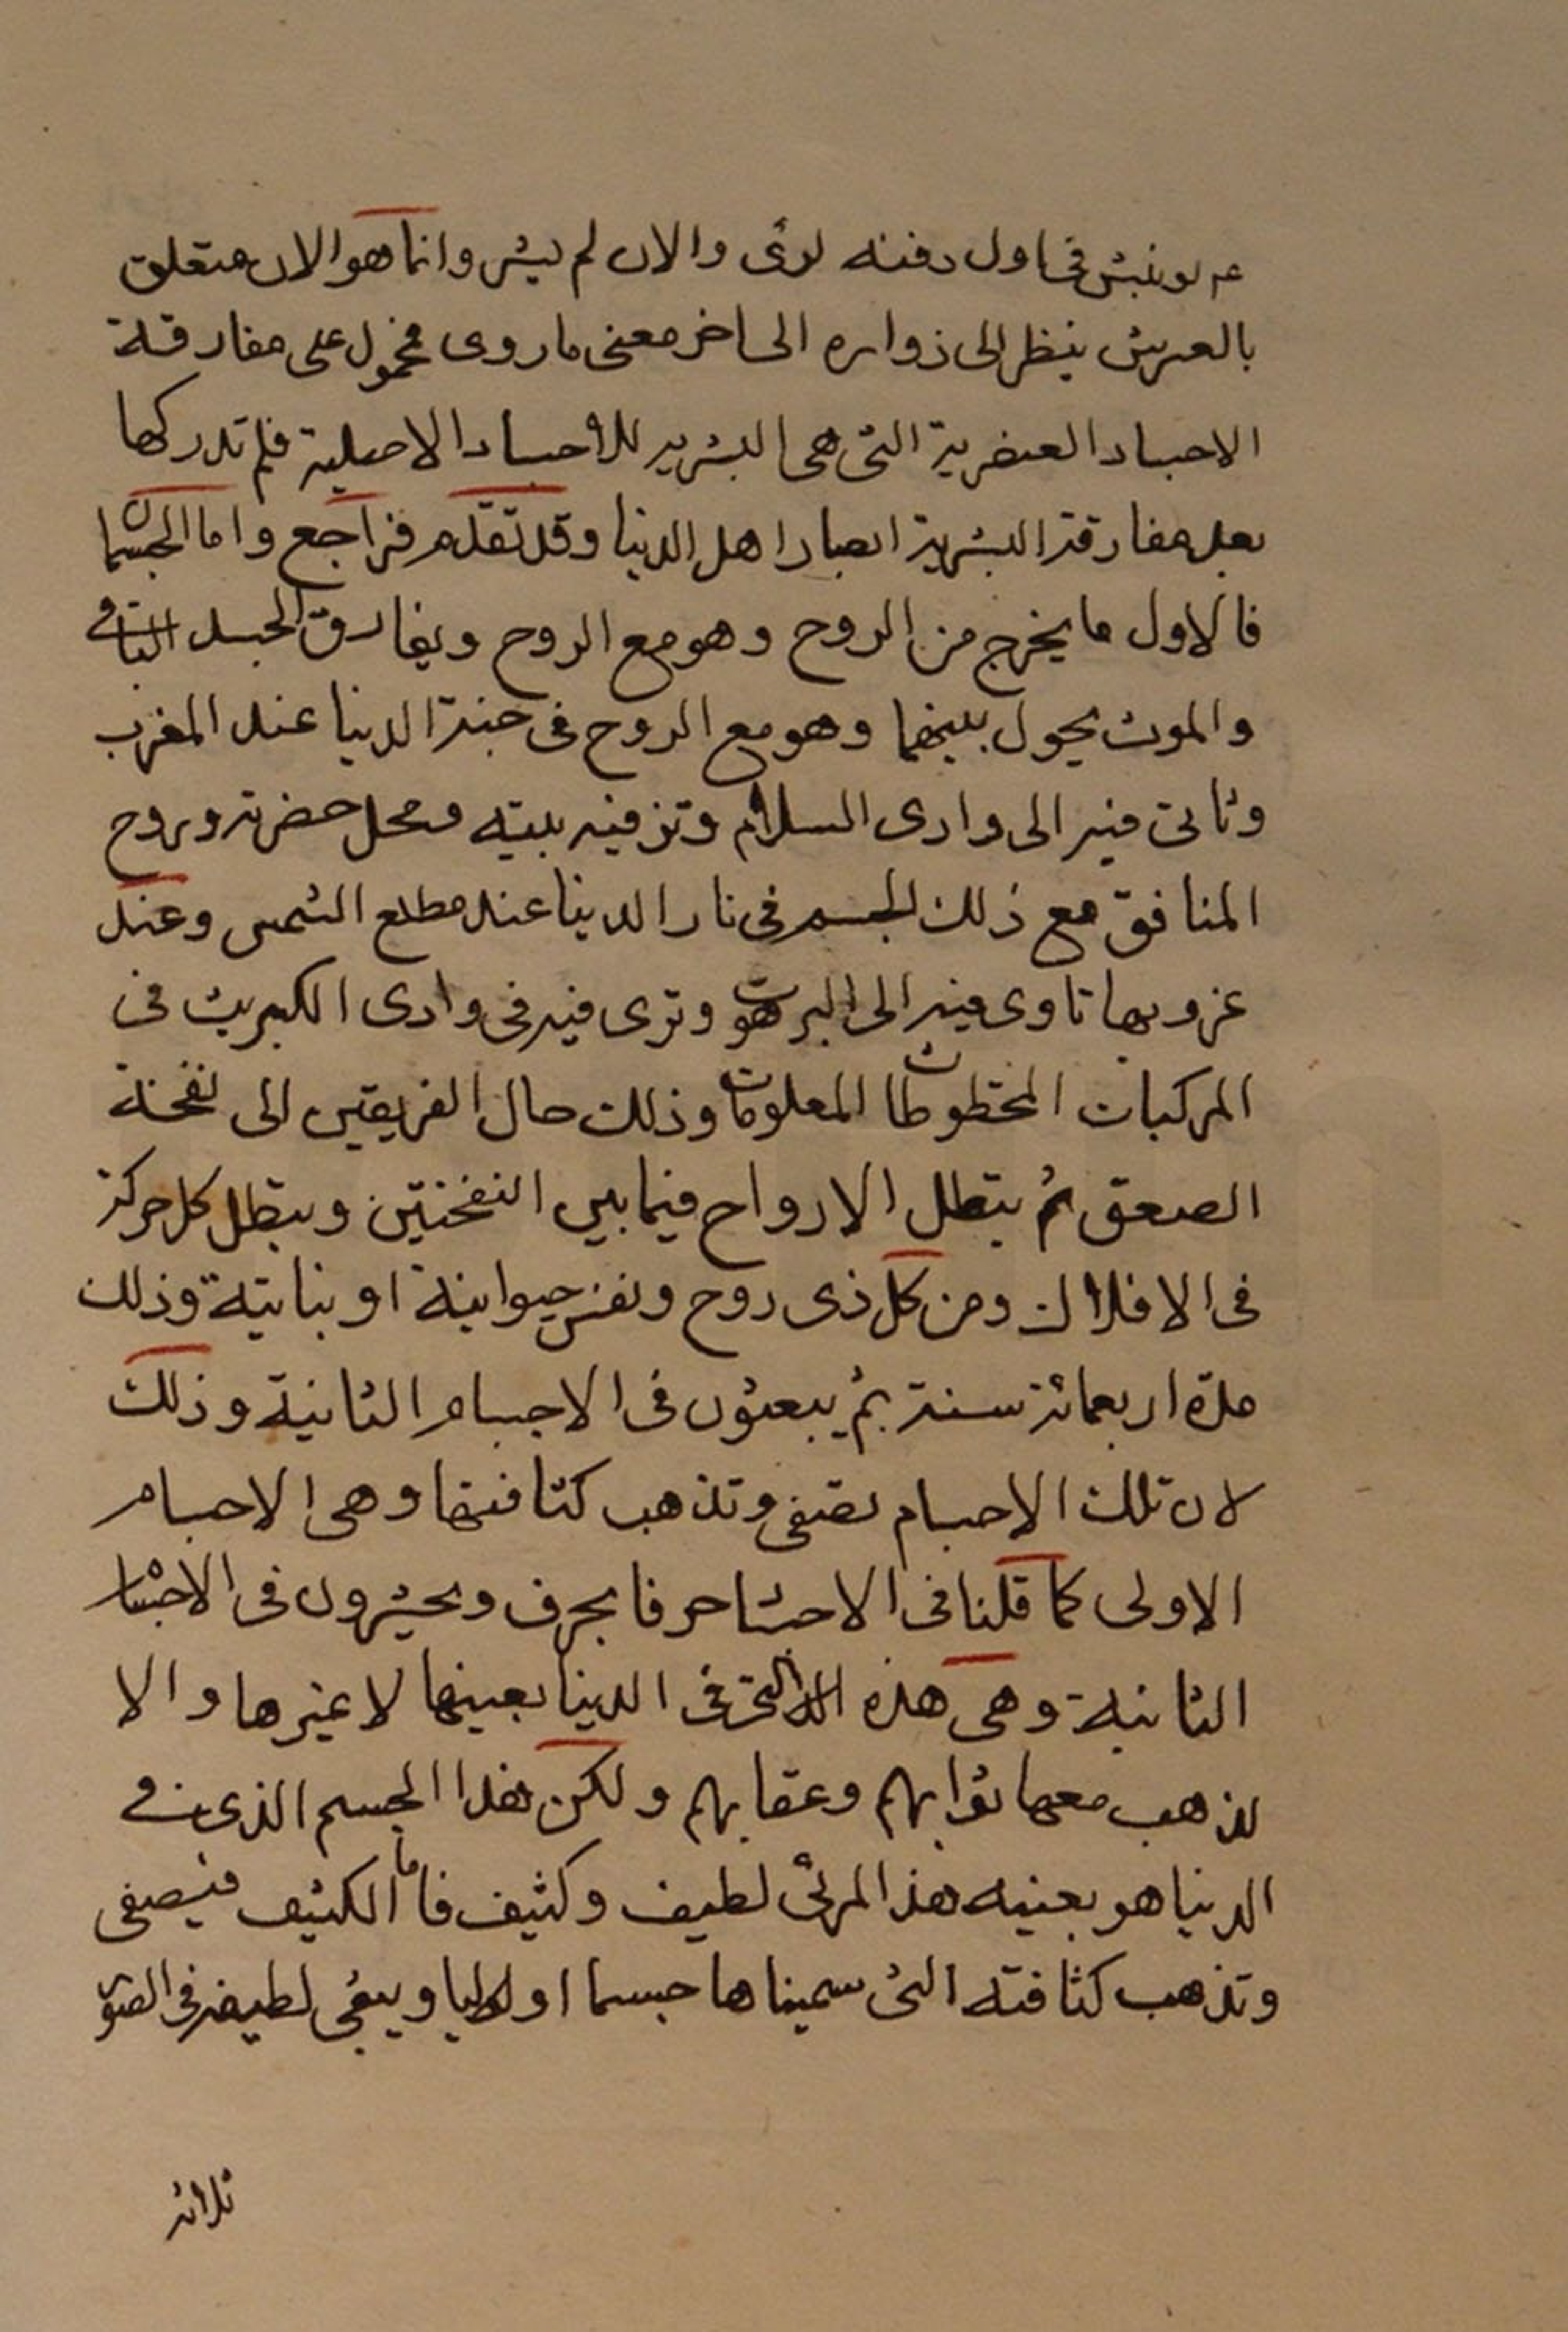 عم لو نبش فى اول دفنه لرئى والان لم ينبش وانما هو الان متعلق
بالعرش ينظر الى زواره الى اخر معنى ما روى محمول على مفارقة
الاجساد العنصرية التى هى البشرية للأجساد الاصلية فلم تدركها
بعد مفارقة البشرية ابصار اهل الدنيا وقد تقدم فراجع واما الجسمان
فالاول ما يخرج من الروح وهو مع الروح ويفارق الجسد الباقى
والموت يحول بينهما وهو مع الروح فى جنة الدنيا عند المغرب
وتاتى فيه الى وادى السلام وتزور فيه بيته ومحل حضرته وروح
المنافق مع ذلك الجسم فى نار الدنيا عند مطلع الشمس وعند
غروبها تاوى فيه الى البرهوت وترى فيه فى وادى الكبريت فى
المركبات المخطوطات المعلومات وذلك حال الفريقين الى نفخة
الصعق ثم يبطل الارواح فيما بين النفختين ويبطل كل حركة
فى الافلاك ومن كل ذى روح ونفس حيوانية او نباتية وذلك
مدة اربعمائة سنة ثم يبعثون فى الاجسام الثانية وذلك
لان تلك الاجسام تصفى وتذهب كثافتها وهى الاجسام
الاولى كما قلنا فى الاجساد حرفا بحرف ويحشرون فى الاجساد
الثانية وهى هذه التى فى الدنيا بعينها لا غيرها والا
لذهب معها ثوابهم وعقابهم ولكن هذا الجسم الذى فى
الدنيا هو بعينه هذا المرئى لطيف وكثيف فاما الكثيف فيصفى
وتذهب كثافته التى سميناها جسما اوليا ويبقى لطيفه فى الصور